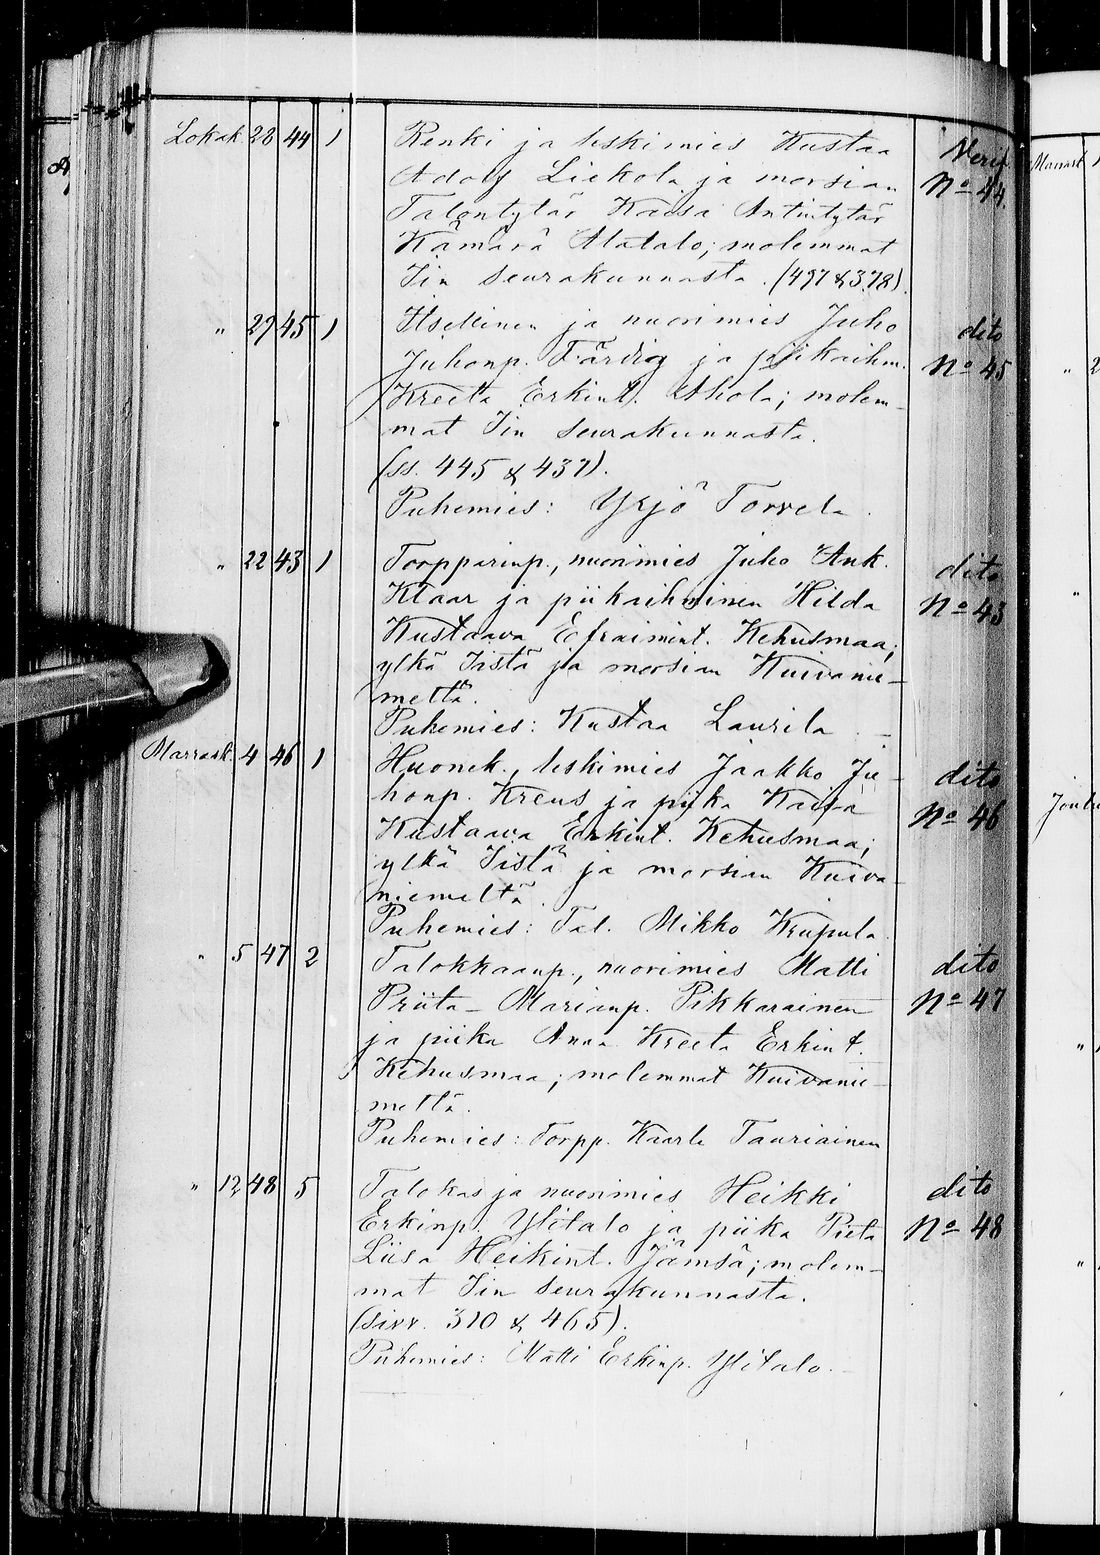 Lokak. 28 44 1 Renki ja leskimies Kustaa Verif.
Adolf Liekola ja morsian No 44.
Talontytär Kaisa Antintytär
Kämärä Alatalo; molemmat
Iin seurakunnasta. (497 & 378).
" 29 45 1 Itsellinen ja nuorimies Juho dito
Juhonp. Färdig ja piikaihm. No 45
Kreeta Erkint. Ahola; molem-
mat Iin seurakunnasta.
(ss. 445 & 437).
Puhemies: Yrjö Torvela.
" 22 43 1 Torpparinp., nuorimies Juho Ant. dito
Klaar ja piikaihminen Hilda No 43
Kustaava Efraimint. Kehusmaa;
ylkä Iistä ja morsian Kuivanie-
meltä.
Puhemies: Kustaa Laurila.
Marrask. 4 46 1 Huonek., leskimies Jaakko Ju- dito
honp. Kreus ja piika Kaisa No 46
Kustaava Erkint. Kehusmaa;
ylkä Iistä ja morsian Kuiva-
niemeltä.
Puhemies: Tal. Mikko
" 5 47 2 Talokkaanp., nuorimies Matti dito
Priita-Marianp. Pikkarainen No 47
ja piika Anna Kreeta Erkint.
Kehusmaa; molemmat Kuivanie-
meltä.
Puhemies: Torpp. Kaarle Tauriainen
" 12 48 5 Talokas ja nuorimies Heikki dito
Erkinp. Ylitalo ja piika Pieta No 48
Liisa Heikint. Jämsä; molem-
mat Iin seurakunnasta.
(sivv. 310 & 465).
Puhemies: Matti Erkinp. Ylitalo.
Marrask.